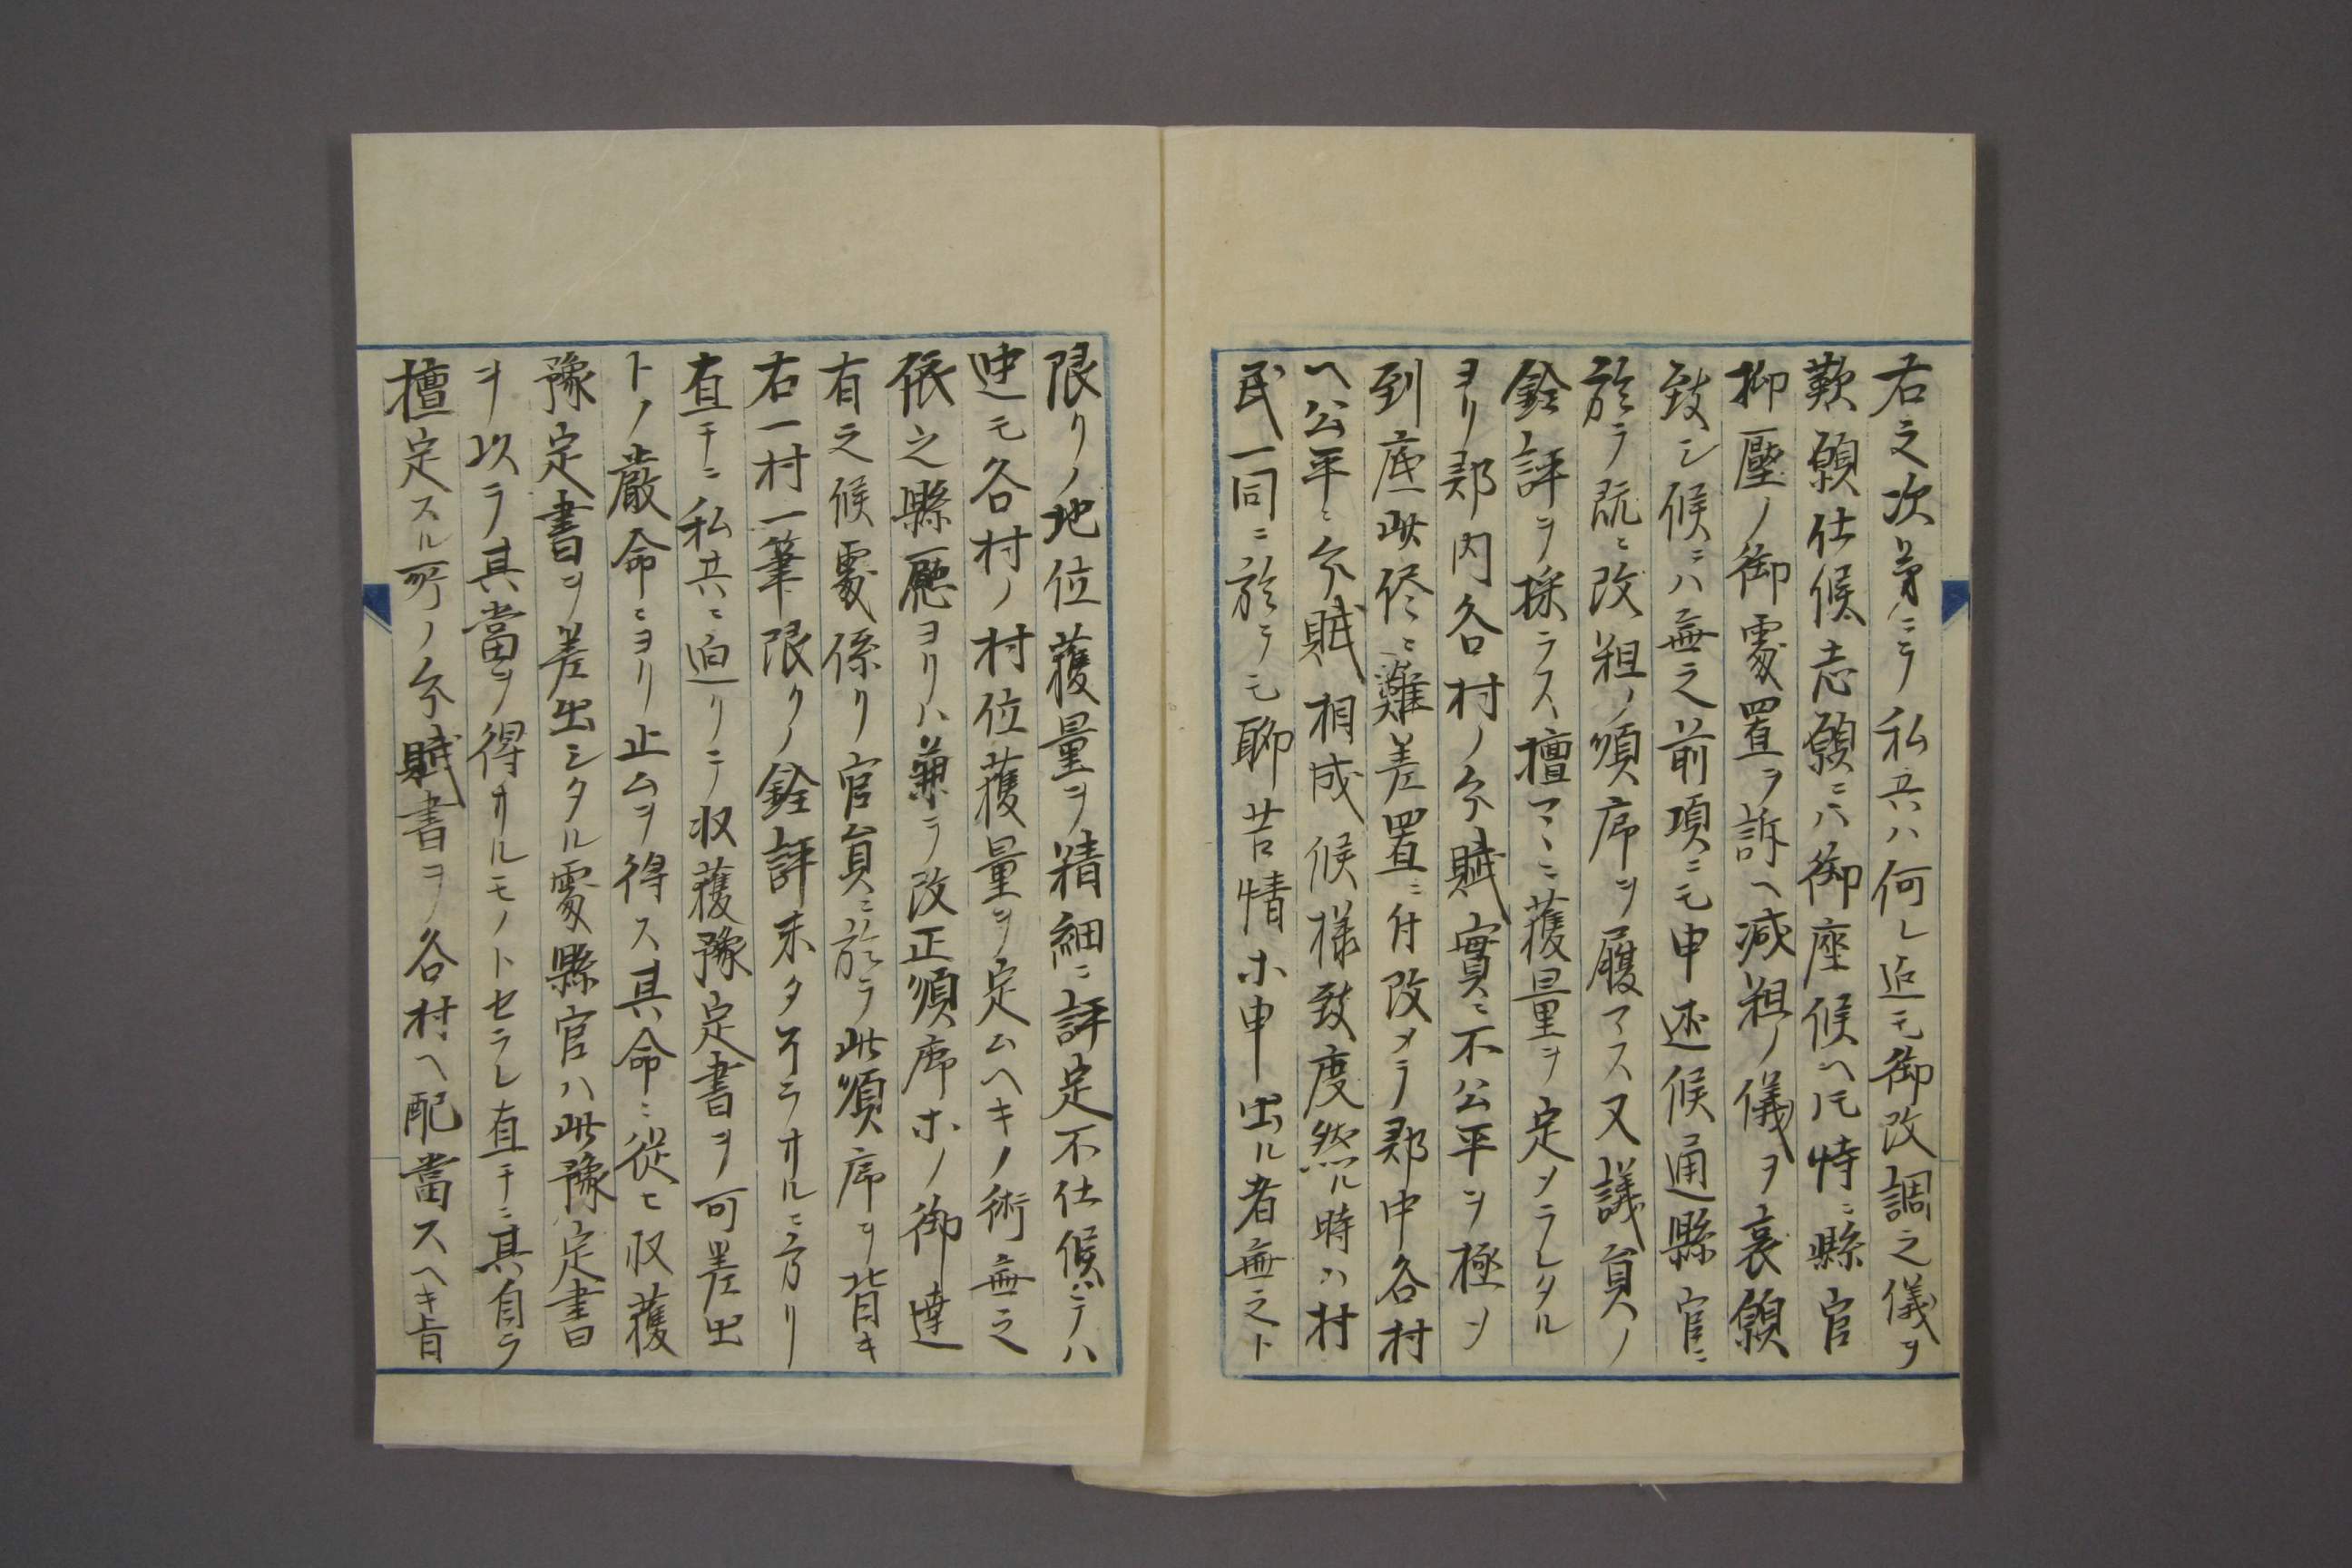 右之次第ニテ私共ハ何レ迠モ御改調之儀ヲ
歎願仕候志願ニハ御座候ヘ𪜈特ニ縣官
抑壓ノ御處置ヲ訴ヘ減租ノ儀ヲ哀願
致シ候ニハ無之前項ニモ申述候通縣官ニ
於テ既ニ改租ノ順序ヲ履マス又議員ノ
銓評ヲ採ラス擅マヽニ獲量ヲ定メラレタル
ヨリ郡内各村ノ分賦實ニ不公平ヲ極メ
到底此侭ニ難差置ニ付改メテ郡中各村
ヘ公平ニ分賦相成候様致度然ル時ハ村
民一同ニ於テモ聊苦情ホ申出ル者無之ト
限リノ地位獲量ヲ精細ニ評定不仕候ハテハ
迚モ各村ノ村位獲量ヲ定ムヘキノ術無之
依之縣廳ヨリハ兼テ改正順席ホノ御達
有之候處係リ官員ニ於テ此順序ヲ背キ
右一村一筆限リノ銓評未タ了ラサルニ方リ
直チニ私共ニ迫リテ収獲豫定書ヲ可差出
トノ嚴命ニヨリ止ムヲ得ス其命ニ従ヒ収獲
豫定書ヲ差出シタル處縣官ハ此豫定書
ヲ以テ其當ヲ得サルモノトセラレ直チニ其自ラ
擅定スル所ノ分賦書ヲ各村ヘ配當スヘキ旨